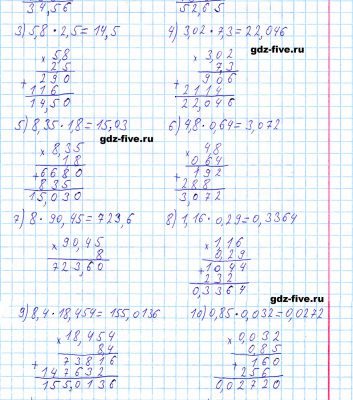 34,56
52,65
3) 5,8 · 2,5 = 14,5
× 5,8
2,5
+ 290
116
14,50
4) 3,02 · 7,3 = 22,046
gdz-five.ru
× 3,02
7,3
+ 906
2114
22,046
5) 8,35 · 1,8 = 15,03
gdz-five.ru
× 8,35
1,8
+ 6680
835
15,030
6) 4,8 · 0,64 = 3,072
× 4,8
0,64
+ 192
288
3,072
7) 8 · 90,45 = 723,6
× 90,45
8
723,60
8) 1,16 · 0,29 = 0,3364
× 1,16
0,29
+ 1044
232
0,3364
gdz-five.ru
9) 8,4 · 18,454 = 155,0136
× 18,454
8,4
+ 73816
147632
155,0136
10) 0,85 · 0,032 = 0,0272
× 0,032
0,85
+ 160
256
0,02720